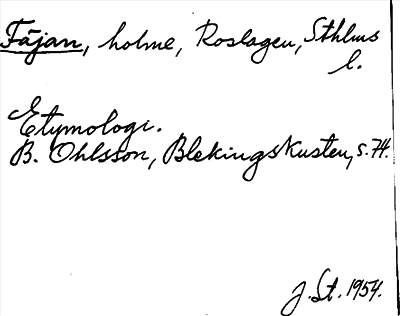 Fåjan, holme, Roslagen, Sthlms
l.
Etymologi.
B. Ohlsson, Blekingskusten, s. 74.
J. St. 1954.